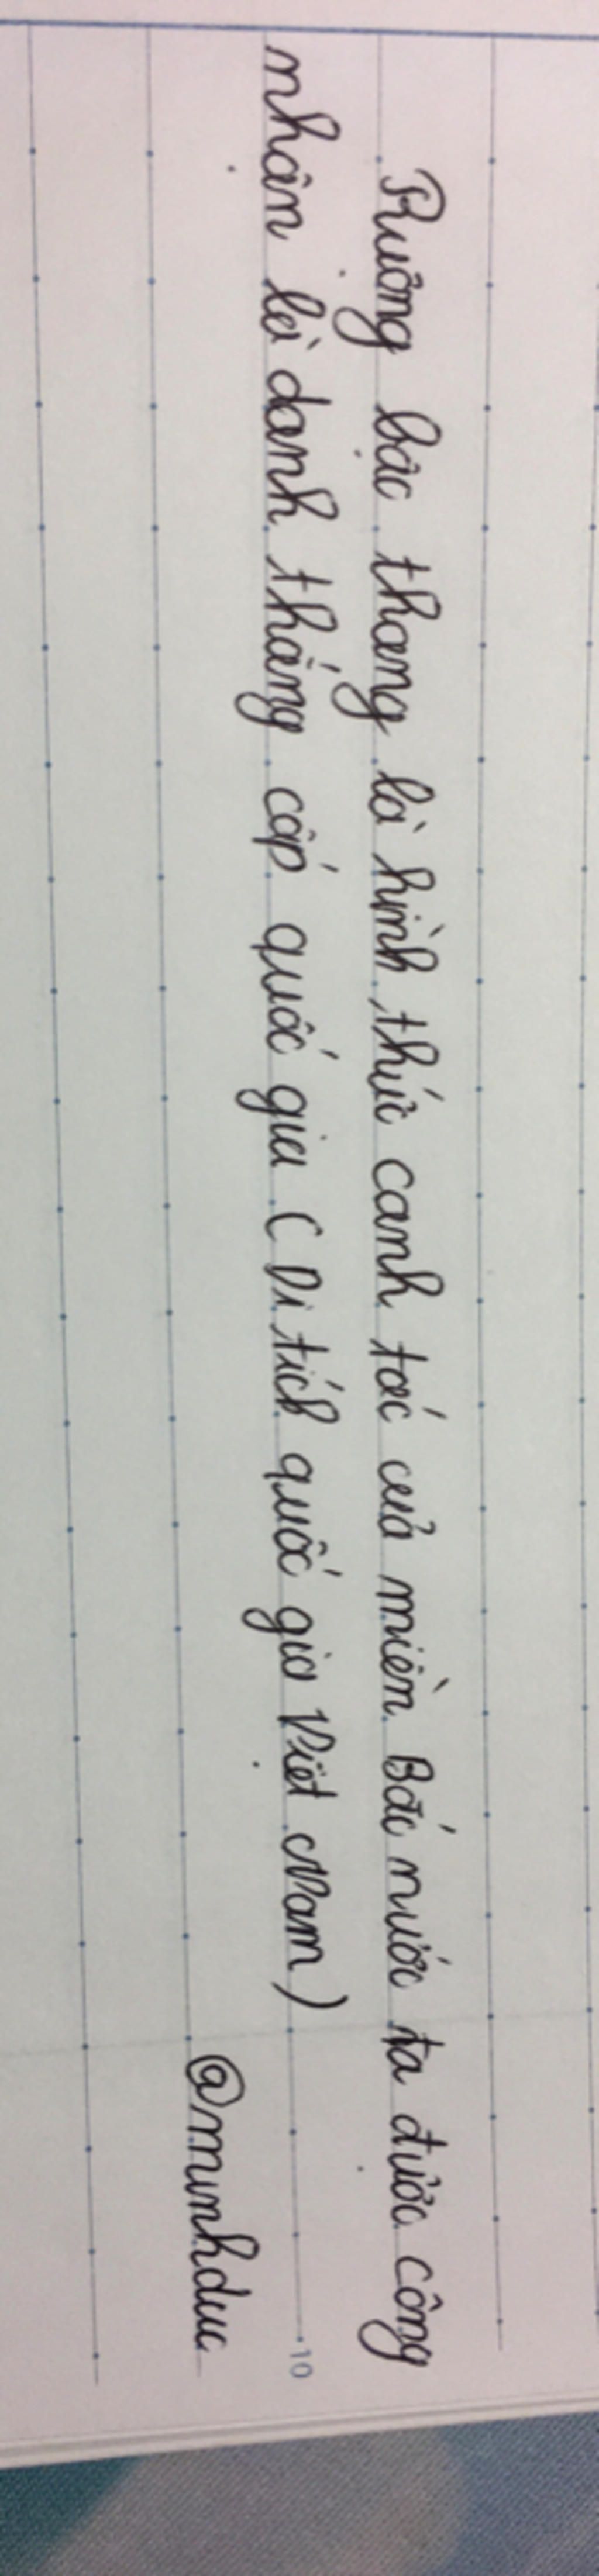 Ruộng bậc thang là hình thức canh tác của miền Bắc nước ta được công
nhận là danh thắng cấp quốc gia (Di tích quốc gia Việt Nam)
@minhduc
10